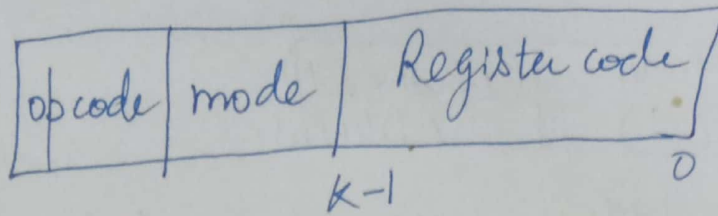 opcode mode Register code
K-1 0